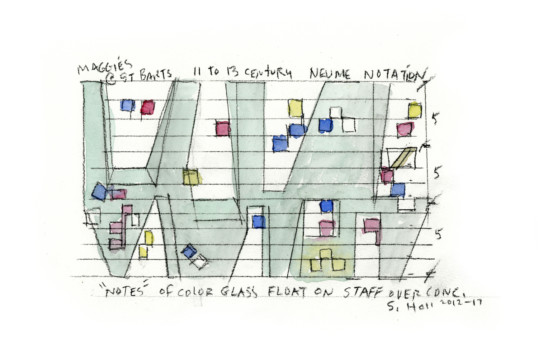 MAGGIES
@ ST BARTS 11 TO 13 CENTURY NEUME NOTATION
5
5
5
"NOTES" OF COLOR GLASS FLOAT ON STAFF OVER CONC.
S. Holl 2012-17